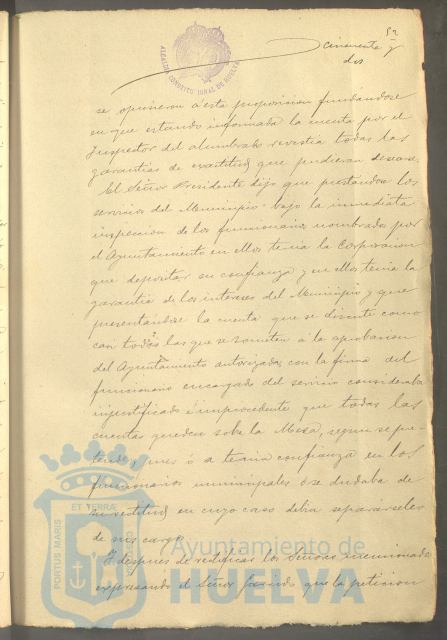 52
cincuenta y
dos
ALCALDIA CONSTITUCIONAL DE HUELVA
se opusieron a esta proposicion fundándose
en que estando informada la cuenta por el
Inspector del alumbrado revestia todas las
garantias de exactitud que pudieran desearse
El Señor Presidente dijo que prestandose los
servicios del Municipio bajo la inmediata
inspeccion de los funcionarios nombrados por
el Ayuntamiento en ellos tenia la Corporacion
que depositar su confianza y en ellos tenia la
garantia de los intereses del Municipio y que
presentándose la cuenta que se discute como
con todas las que se someten á la aprobacion
del Ayuntamiento autorizadas con la firma del
funcionario encargado del servicio consideraba
injustificado é improcedente que todas las
cuentas queden sobre la Mesa, segun se pre-
tende, pues ó se tenia confianza en los
funcionarios municipales ó se dudaba de
su rectitud en cuyo caso debia separárseles
de sus cargos
Y despues de rectificar los Señores mencionados
expresando el Señor que la peticion
PORTUS MARIS
ET TERRÆ
Ayuntamiento de
HUELVA